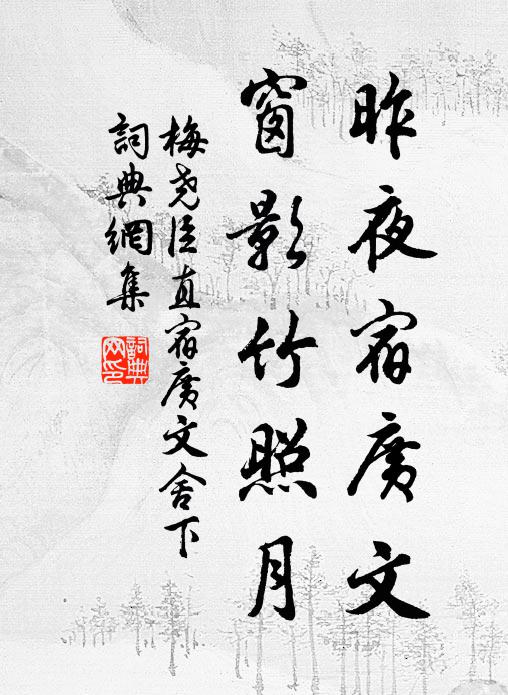 昨夜宿廣文
窗影竹照月
梅堯臣直宿廣文舍下
詞典網集
詞典网印